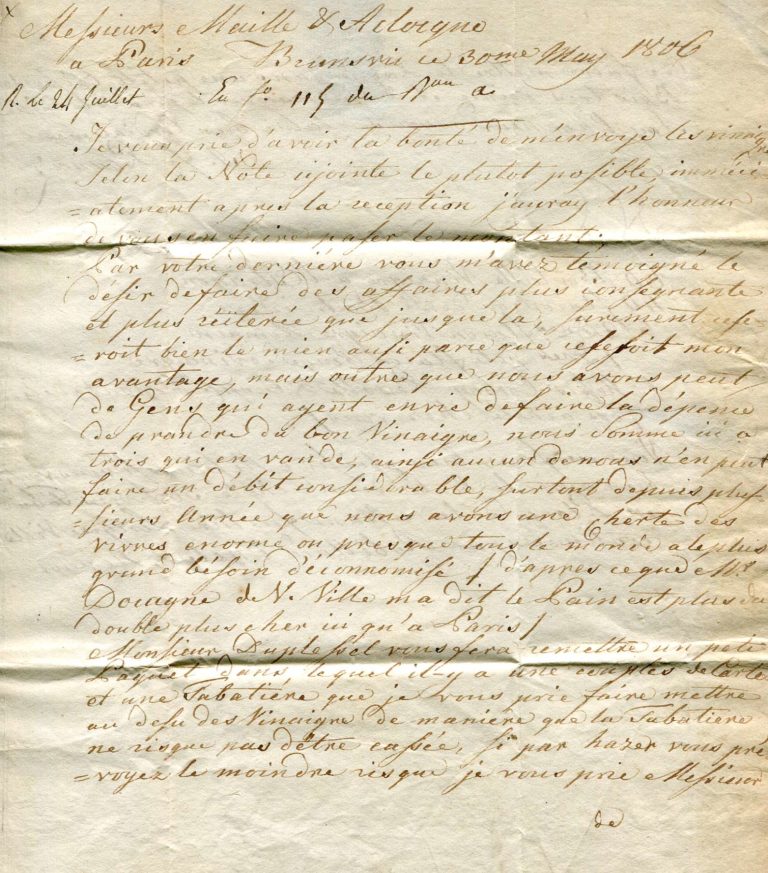 Messieurs Maille & Aclocque
a Paris Brunsvic ce 30me May 1806
R. Le 24 Juillet En fo. 115 du
Je vous prie d'avoir la bonté de m'envoye les vinaigre
selon la Note cijointe le plutot possible, immédi
=atement après la reception j'auray l'honneur
de vous en faire passer le montant.
Par votre dernière vous m'avez témoigné le
désir de faire des affaires plus conséquante
et plus réiterée que jusque la, surement cese-
=roit bien le mien aussi parce que ce seroit mon
avantage, mais outre que nous avons peut
de Gens qui ayent envie de faire la dépence
de prandre du bon Vinaigre, nous somme ici a
trois qui en vande, ainsi aucun de nous n'en peut
faire un débit considérable, surtout depuis plus
=sieurs Année que nous avons une cherte des
vivres enorme ou presque tous le monde a le plus
grand bésoin d'éconnomisé / d'apres ce que Mr.
Docagne de N. Ville ma dit le Pain est plus du
double plus cher ici qu'a Paris /
Monsieur Duplessel vous fera remettre un petit
Paquet dans lequel il-y a une couples de Carte
et une Tabatière que je vous prie faire mettre
au desu des Vinaigre de manière que la Tabatière
ne risque pas d'être cassée, si par hazer vous pré
=voyez le moindre risque je vous prie Messieur
de